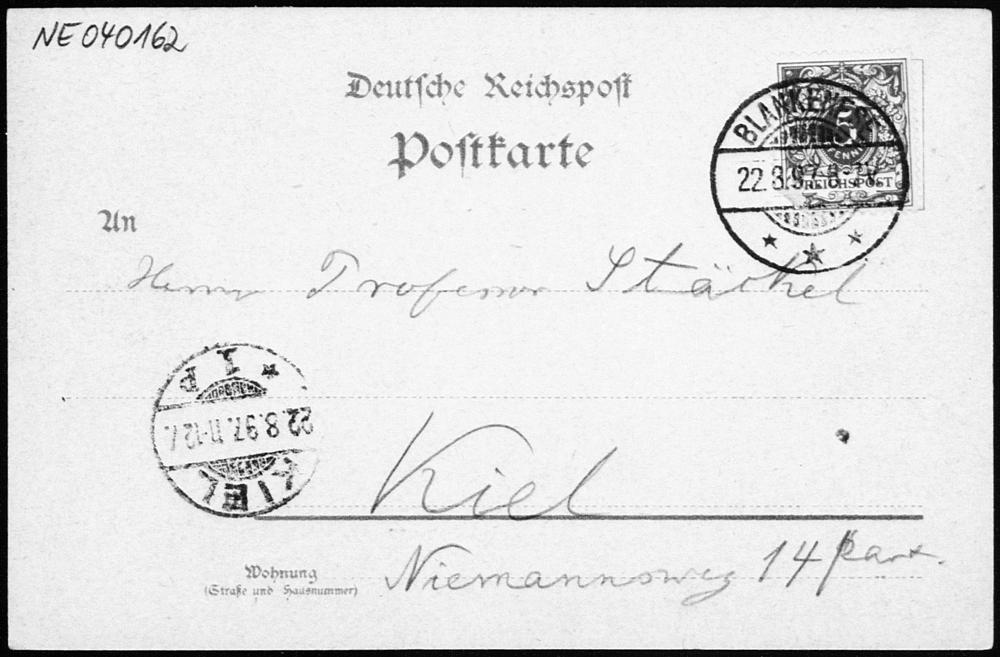 NE040162
Deutsche Reichspost
Postkarte
BLANKENESE
22.8.97. 6-7N.
5
PFENNIG
REICHSPOST
An
Herrn Professor Stäckel
* 1 P
22.8.97. 11-12
KIEL
Kiel
Wohnung
(Straße und Hausnummer)
Niemannsweg 14 part.